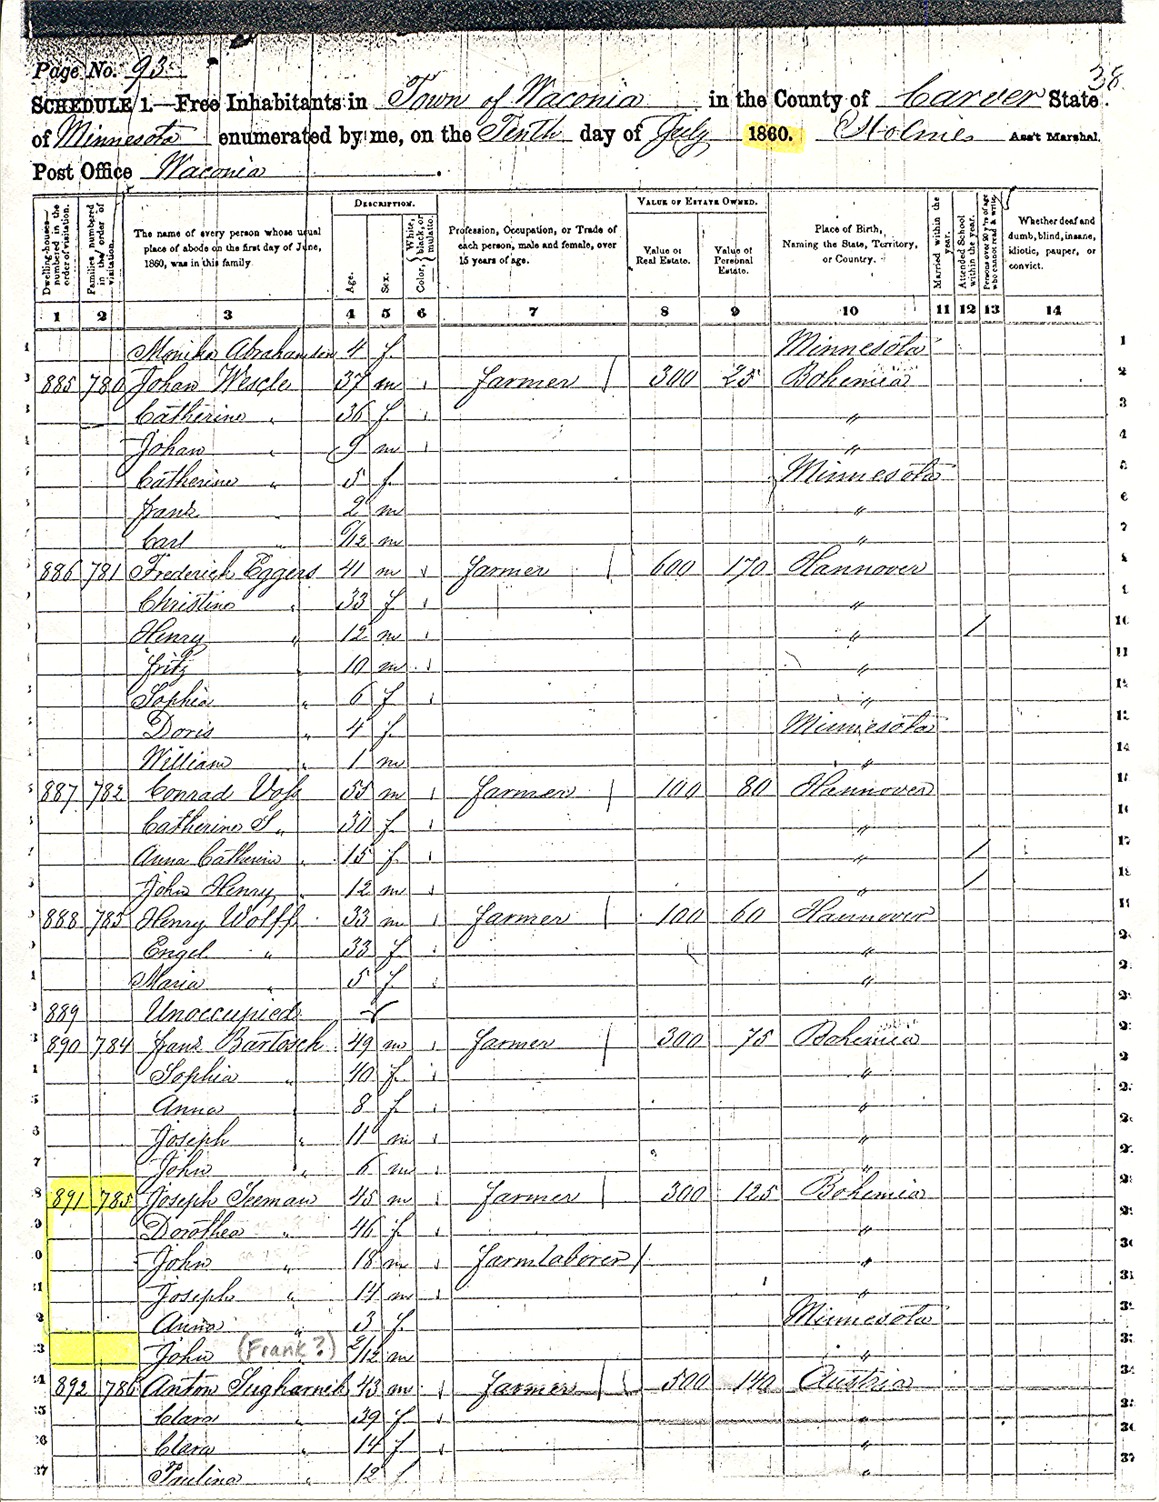 38
Page No. 93
SCHEDULE 1.—Free Inhabitants in Town of Waconia in the County of Carver State
of Minnesota enumerated by me, on the Tenth day of July 1860. Holmes Ass't Marshal.
Post Office Waconia
Dwelling-houses—numbered in the order of visitation.
Families numbered in the order of visitation.
The name of every person whose usual place of abode on the first day of June, 1860, was in this family.
DESCRIPTION.
Age.
Sex.
Color, White, black, or mulatto.
Profession, Occupation, or Trade of each person, male and female, over 15 years of age.
VALUE OF ESTATE OWNED.
Value of Real Estate.
Value of Personal Estate.
Place of Birth, Naming the State, Territory, or Country.
Married within the year.
Attended School within the year.
Persons over 20 y'rs of age who cannot read & write.
Whether deaf and dumb, blind, insane, idiotic, pauper, or convict.
1 2 3 4 5 6 7 8 9 10 11 12 13 14
1 Monika Abrahamson 4 f Minnesota 1
885 780 Johan Wescle 37 m farmer / 300 25 Bohemia 2
Catherine " 36 f " 3
Johan " 9 m " 4
Catherine " 5 f Minnesota 5
Frank 2 m " 6
Carl " 6/12 m " 7
886 781 Frederich Eggers 41 m farmer / 600 170 Hannover
Christine " 33 f " 9
Henry " 12 m " / 10
Fritz " 10 m " 11
Sophia " 6 f " 12
Doris " 4 f Minnesota 13
William " 1 m " 14
887 782 Conrad Voß 55 m farmer / 100 80 Hannover 15
Catherine S " 30 f " 16
Anna Catherin " 15 f " / 17
John Henry " 12 m " / 18
888 783 Henry Wolff 33 m farmer / 100 60 Hannover 19
Engel " 33 f " 2
Maria " 5 f " 2
889 Unoccupied 2
890 784 Frank Bartosch 49 m farmer / 300 75 Bohemia 2
Sophia " 40 f " 2
Anna " 8 f " 2
Joseph " 11 m " 2
John " 6 m " 2
891 785 Joseph Seeman 45 m farmer / 300 125 Bohemia 2
Dorothea " 46 f " 2
John " 18 m farmlaborer / " 30
Joseph " 14 m " 31
Anna " 3 f Minnesota 3
John (Frank?) 2/12 m " 3
892 786 Anton 43 m farmer / 500 140 Austria 3
Clara " 39 f " 3
Clara " 14 f " 36
37 Paulina " 12 f " 37